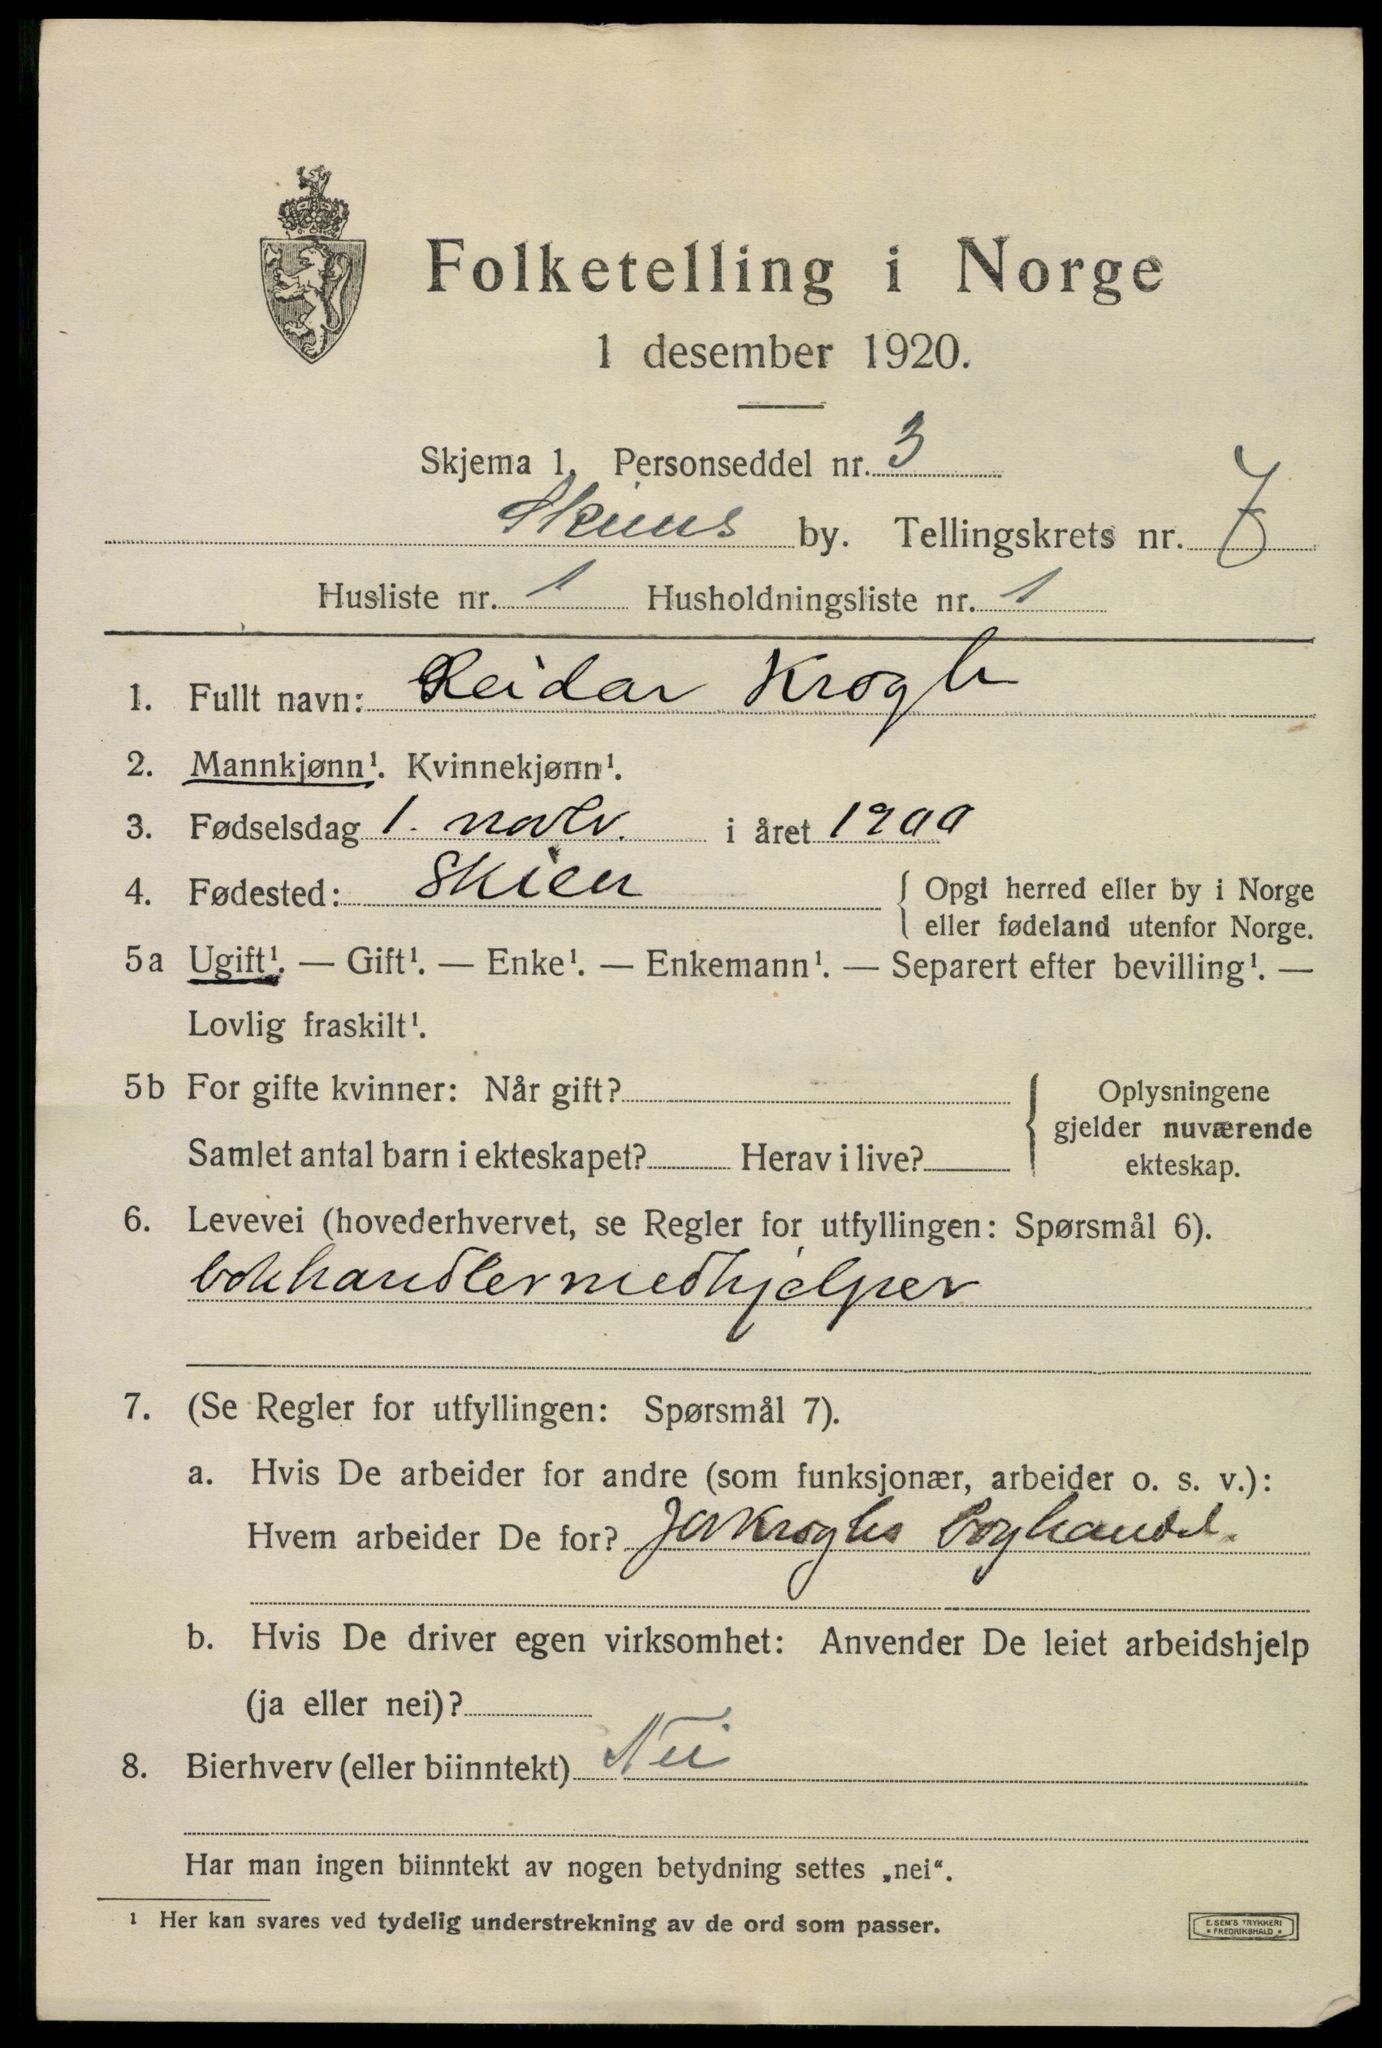 Folketelling i Norge
1 desember 1920.
Skjema 1. Personseddel nr. 3
Skiens by. Tellingskrets nr. 7
Husliste nr. 1 Husholdningsliste nr. 1
1. Fullt navn: Reidar Krogh
2. Mannkjønn¹. Kvinnekjønn¹.
3. Fødselsdag 1. novbr. i året 1900
4. Fødested: Skien { Opgi herred eller by i Norge
eller fødeland utenfor Norge.
5a Ugift¹. — Gift¹. — Enke¹. — Enkemann¹. — Separert efter bevilling¹. —
Lovlig fraskilt¹.
5b For gifte kvinner: Når gift? { Oplysningene
gjelder nuværende
Samlet antal barn i ekteskapet? Herav i live? ekteskap.
6. Levevei (hovederhvervet, se Regler for utfyllingen: Spørsmål 6).
bokhandlermedhjelper
7. (Se Regler for utfyllingen: Spørsmål 7).
a. Hvis De arbeider for andre (som funksjonær, arbeider o. s. v.):
Hvem arbeider De for? Kroghs Boghandel.
b. Hvis De driver egen virksomhet: Anvender De leiet arbeidshjelp
(ja eller nei)?
8. Bierhverv (eller biinntekt) Nei
Har man ingen biinntekt av nogen betydning settes „nei“.
¹ Her kan svares ved tydelig understrekning av de ord som passer.
E. SEM'S TRYKKERI
FREDRIKSHALD